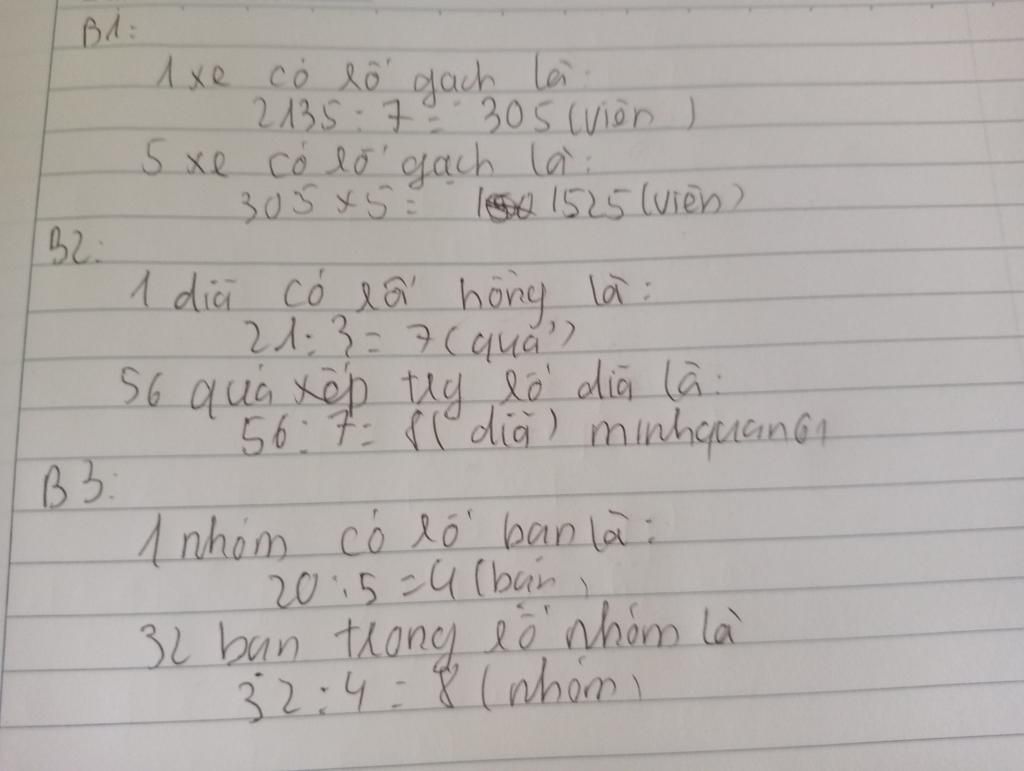 B1:
1 xe có số gạch là:
2135 : 7 = 305 (viên)
5 xe có số gạch là:
305 x 5 = 1525 (viên)
B2:
1 diã có số hồng là:
21 : 3 = 7 (quả)
56 quả xếp số diã là:
56 : 7 = 8 (diã) minhquan61
B3:
1 nhóm có số bạn là:
20 : 5 = 4 (bạn)
32 bạn trong số nhóm là
32 : 4 = 8 (nhóm)